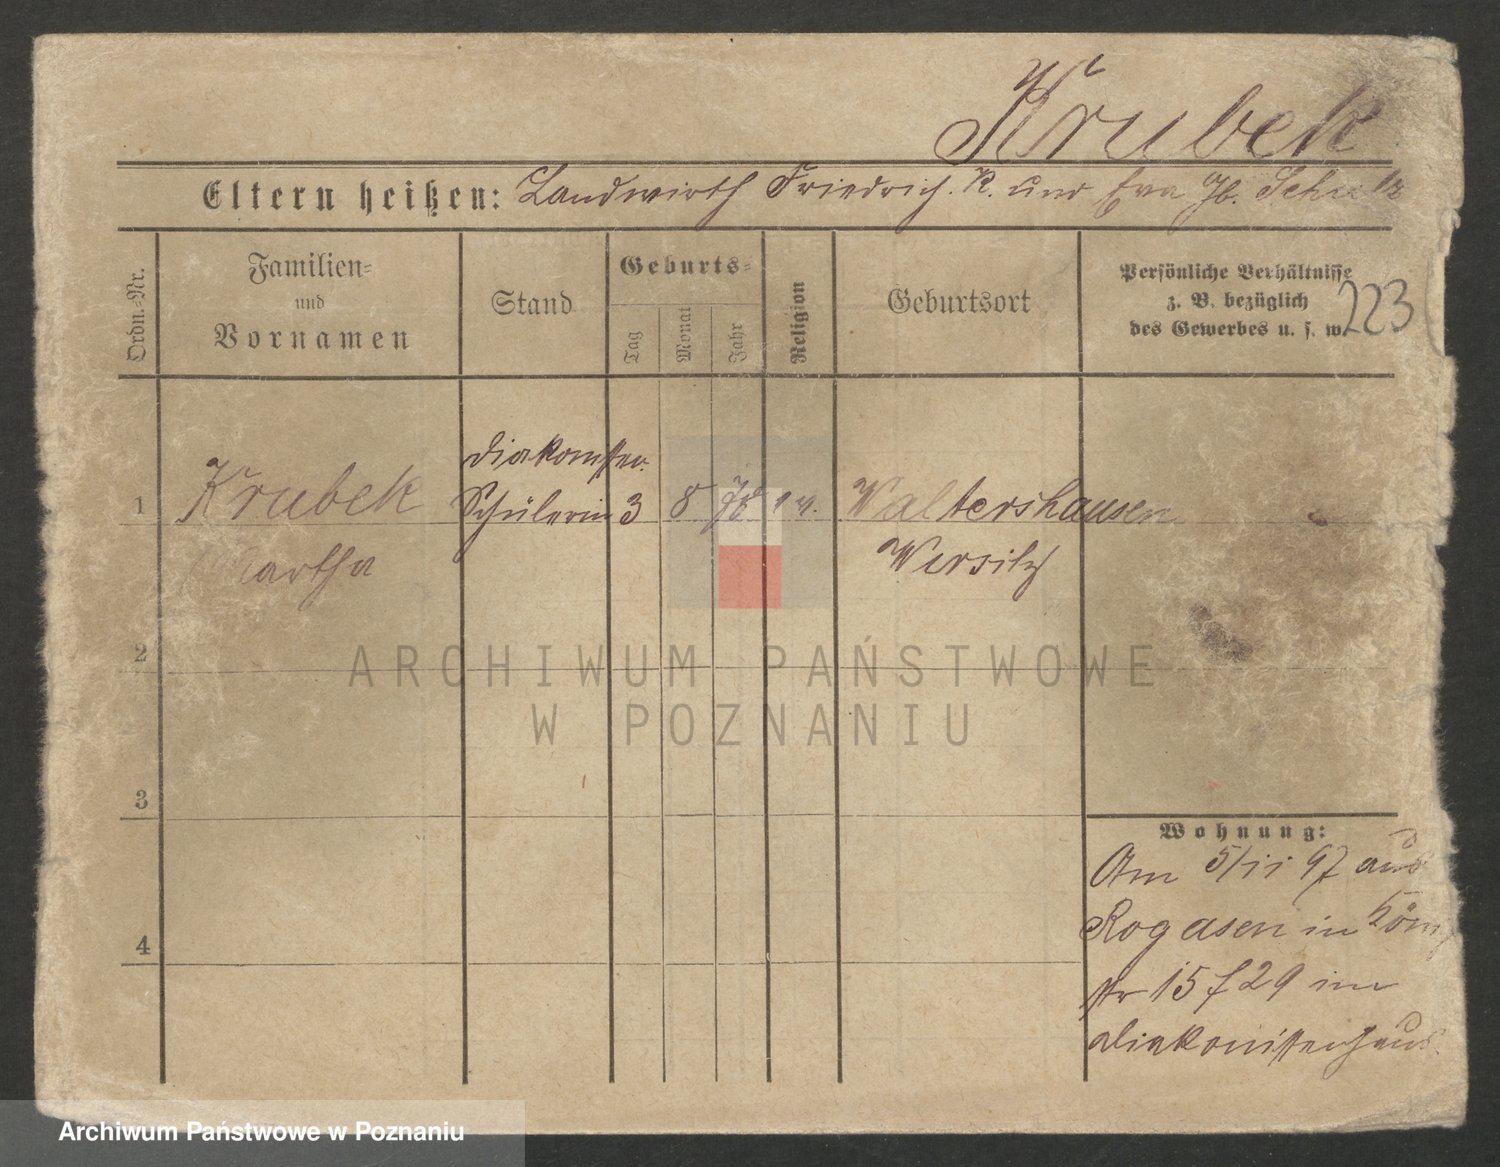 Krubek
Eltern heißen: Landwirth Friedrich K. und Eva gb. Schulz
Ordn.-Nr.
Familien-
und
Vornamen
Stand
Geburts-
Tag
Monat
Jahr
Religion
Geburtsort
Persönliche Verhältnisse
z. B. bezüglich
des Gewerbes u. s. w.
223
1
Krubek
Martha
Diakonissen
Schülerin
3
8
78
ev.
Waltershausen
Wersitz
2
3
4
Wohnung:
Am 5/11 97 aus
Rogasen in König
str 15/29 im
Diakonissenhaus.
ARCHIWUM PAŃSTWOWE
W POZNANIU
Archiwum Państwowe w Poznaniu